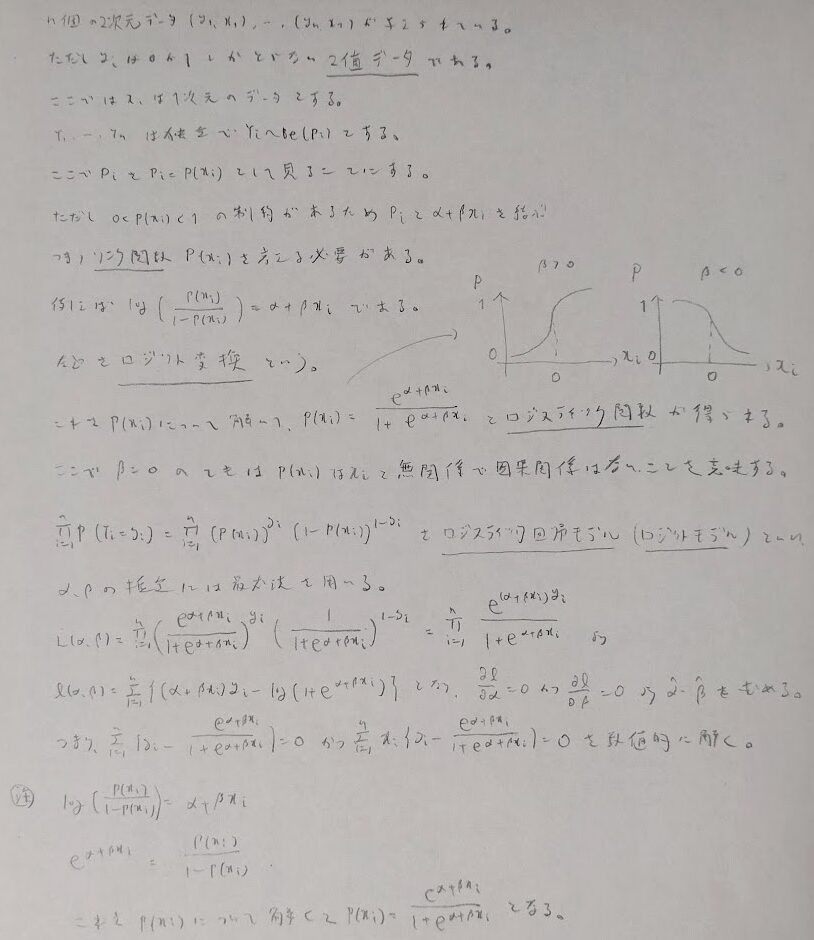 n個の2次元データ (y₁, x₁), …, (yₙ, xₙ) が与えられている。
ただし yᵢ は 0 か 1 しかとらない 2値データ である。
ここでは xᵢ は1次元のデータとする。
Y₁, …, Yₙ は独立で Yᵢ~Be(pᵢ) とする。
ここで pᵢ を pᵢ = p(xᵢ) として見ることにする。
ただし 0<p(xᵢ)<1 の制約があるため pᵢ と α+βxᵢ を結ぶ
つまりリンク関数 p(xᵢ) を考える必要がある。
例えば log(p(xᵢ)/(1-p(xᵢ))) = α+βxᵢ である。
β>0
P
1
0
0
xᵢ
β<0
P
1
0
0
xᵢ
左辺を ロジット変換 という。
これを p(xᵢ) について解いて、 p(xᵢ) = e^(α+βxᵢ)/(1+e^(α+βxᵢ)) と ロジスティック関数 が得られる。
ここで β=0 のときは p(xᵢ) は xᵢ と無関係で因果関係はないことを意味する。
∏ᵢ₌₁ⁿ P(Yᵢ=yᵢ) = ∏ᵢ₌₁ⁿ (p(xᵢ))^yᵢ (1-p(xᵢ))^(1-yᵢ) を ロジスティック回帰モデル (ロジットモデル) といい
α, β の推定には最尤法を用いる。
L(α,β) = ∏ᵢ₌₁ⁿ (e^(α+βxᵢ)/(1+e^(α+βxᵢ)))^yᵢ (1/(1+e^(α+βxᵢ)))^(1-yᵢ) = ∏ᵢ₌₁ⁿ e^((α+βxᵢ)yᵢ)/(1+e^(α+βxᵢ)) より
l(α,β) = ∑ᵢ₌₁ⁿ {(α+βxᵢ)yᵢ - log(1+e^(α+βxᵢ))} となり、 ∂l/∂α=0 かつ ∂l/∂β=0 より α̂, β̂ を求める。
つまり、 ∑ᵢ₌₁ⁿ {yᵢ - e^(α+βxᵢ)/(1+e^(α+βxᵢ))} = 0 かつ ∑ᵢ₌₁ⁿ xᵢ{yᵢ - e^(α+βxᵢ)/(1+e^(α+βxᵢ))} = 0 を数値的に解く。
注 log(p(xᵢ)/(1-p(xᵢ))) = α+βxᵢ
e^(α+βxᵢ) = p(xᵢ)/(1-p(xᵢ)).
これを p(xᵢ) について解くと p(xᵢ) = e^(α+βxᵢ)/(1+e^(α+βxᵢ)) となる。